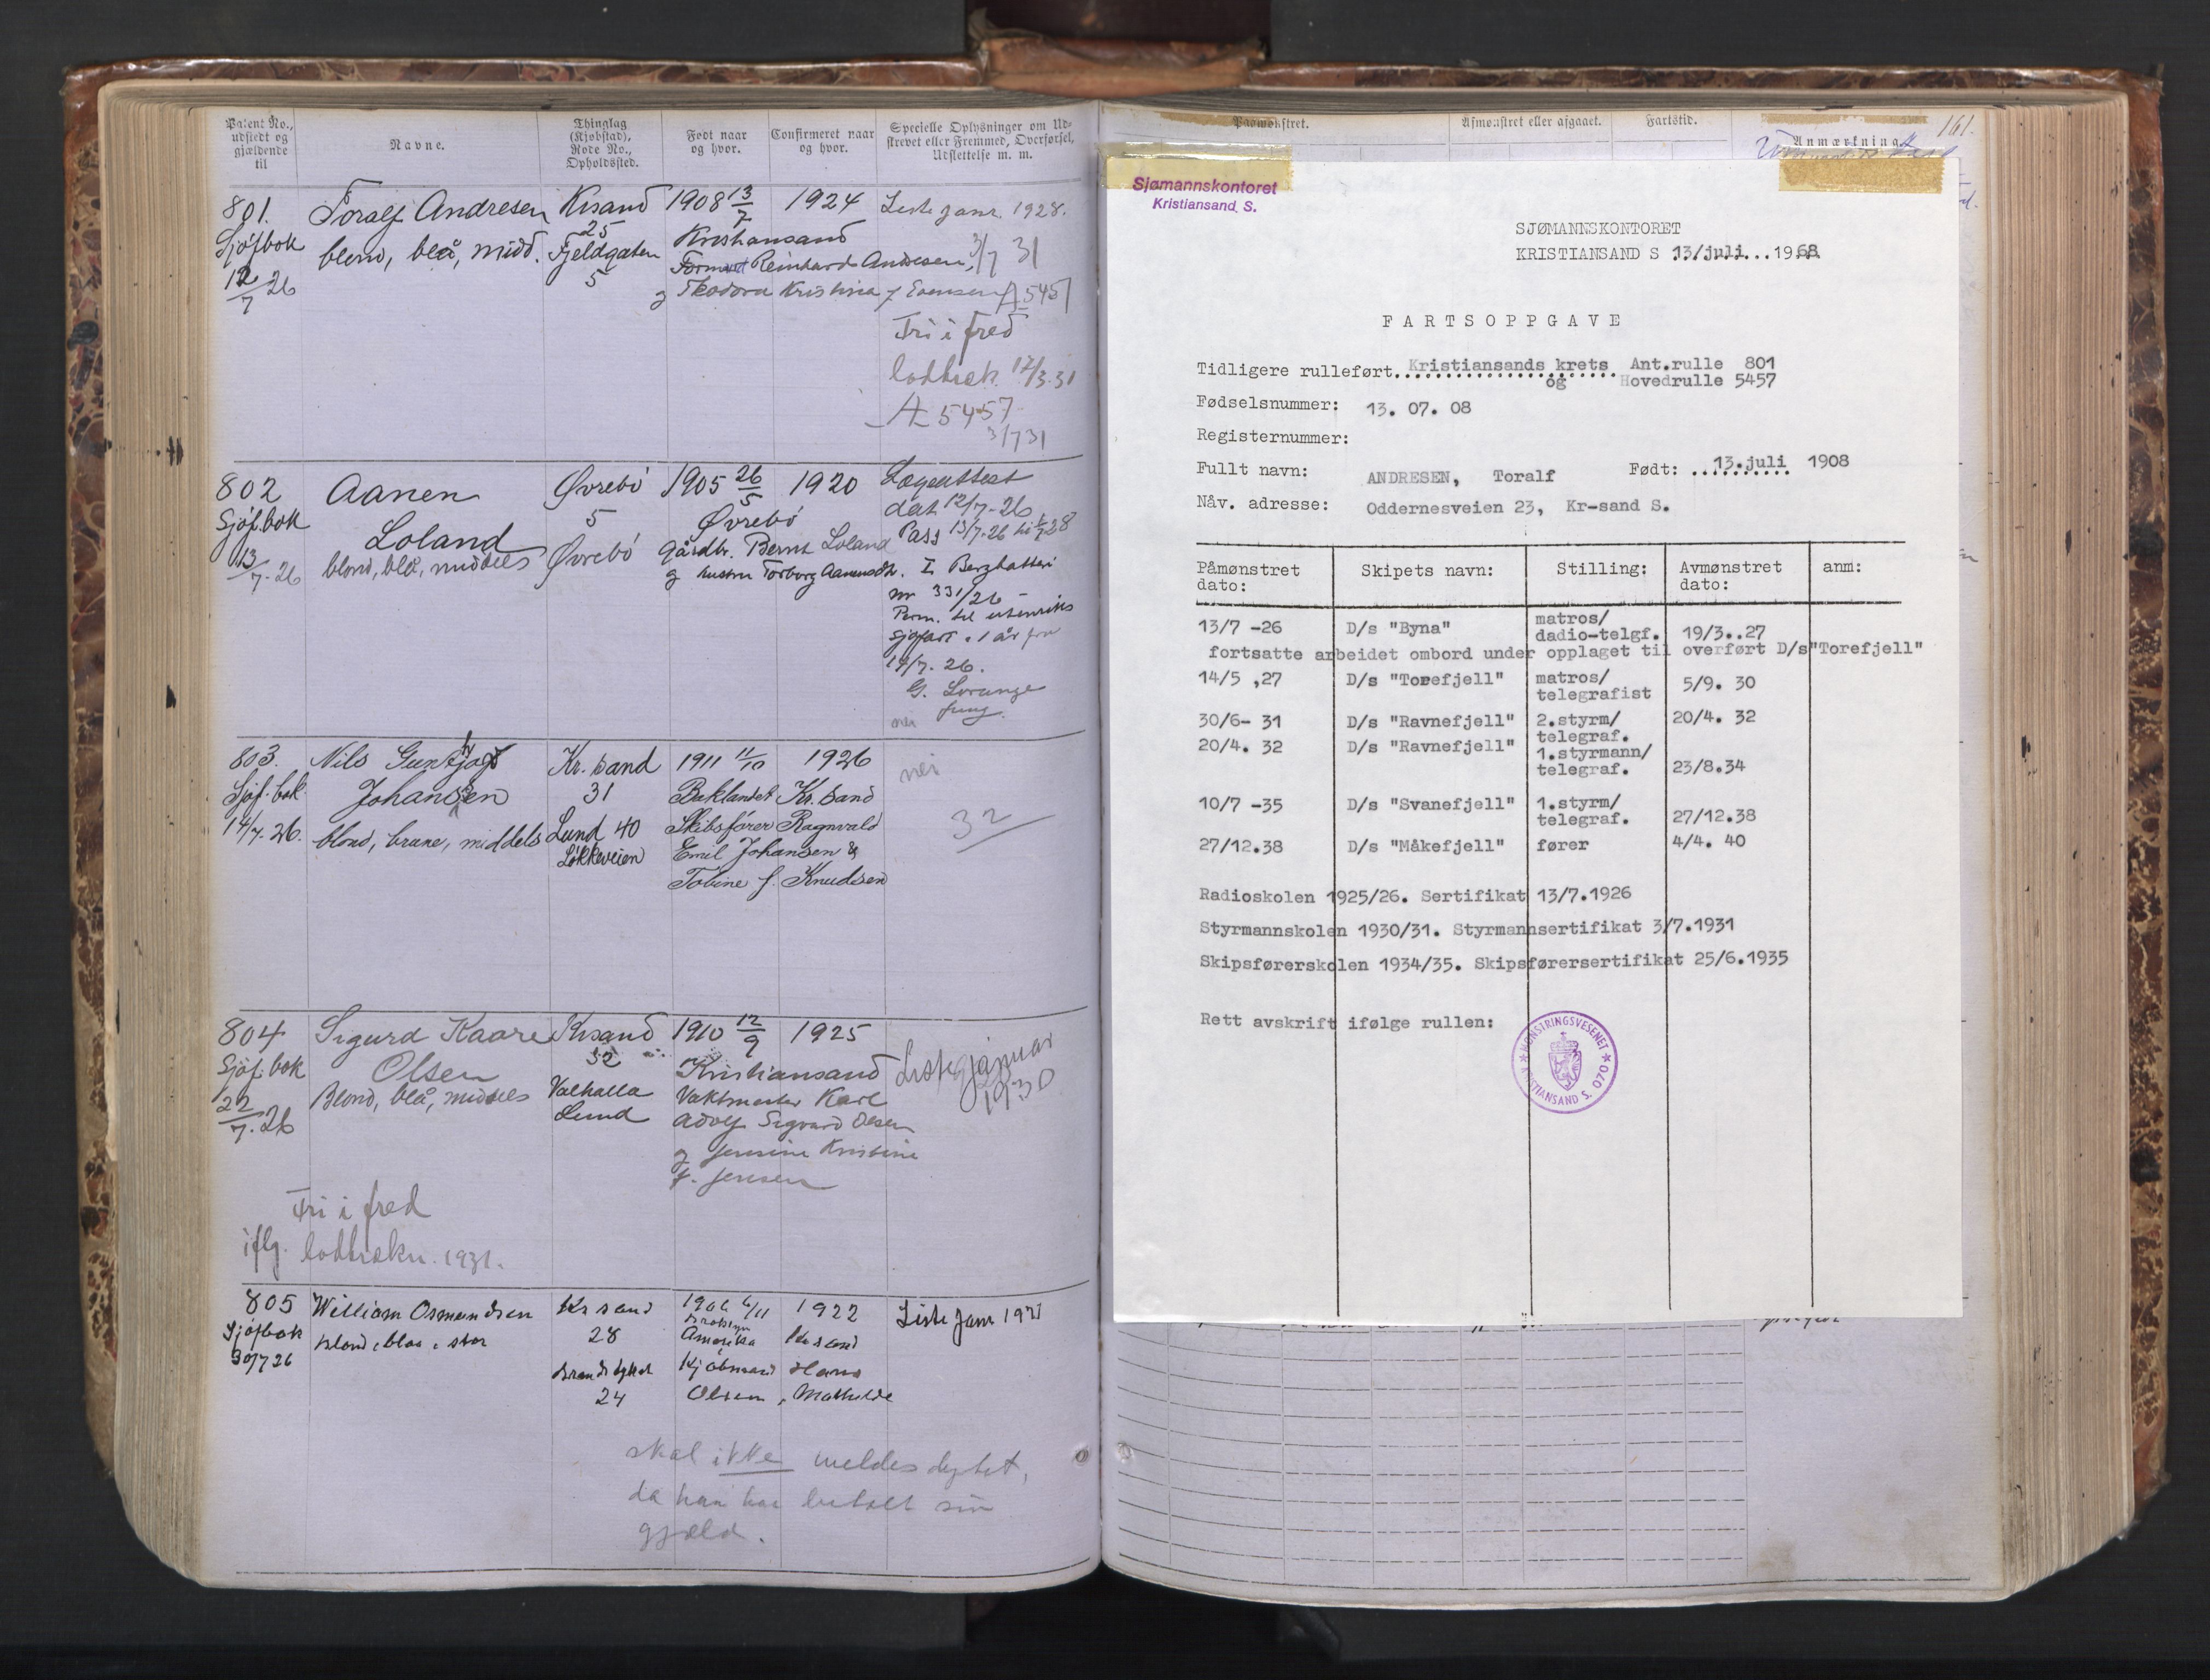 Patent No., udstedt og gjældende til
Navne.
Thinglag (Kjøbstad), Rode No., Opholdssted.
Født naar og hvor.
Confirmeret naar og hvor.
Specielle Oplysninger om Udstrevet eller Fremmed, Overførsel, Udslettelse m. m.
801. Toralf Andresen Krsand 1908 13/7 1924 Liste janr. 1928.
Sjøfbok blond, blå, midd. 25 Kristiansand 3/7 31
12/7 26 Fjeldgaten Reinhard Andresen,
5 g Teodora Kristina f Evensen A 5457
Fri i fred
lodtræk. 17/3.31
A 5457
3/7 31
802 Aanen Øvrebö 1905 26/5 1920 Lægeattest
Sjöf.bok Loland 5 Øvrebö dat 12/7-26
13/7-26 blond, blå, middels Øvrebö Gårdbr. Bernt Loland Pass 13/7-26 til 28
g hustru Torborg Aanensdtr. I. Bergbatteri
nr 331/26
Perm. til utenriks
sjøfart i 1 år fra
17/7. 26.
nei
803. Nils Johansen Kr.sand 1911 11/10 1926 nei
Sjöf.bok 31 Baklandet Kr.sand 32
14/7.26. blond, brune, middels Lund 40 Skibsfører Ragnvald
Løkkeveien Emil Johansen &
Tobine f. Knudsen
804 Sigurd Kaare Krsand 1910 12/9 1925
Sjöf.bok Olsen 32 Kristiansand Liste januar
22/7.26 Blond, blå, middels Valhalla Vaktmester Karl 1930
Lund Adolf Sigvard Olsen
g Jensine Kristine
f. Jensen
Fri i fred
iflg. lodtrækn. 1931.
805 William Osmundsen Krsand 6/11 1922 Liste Janr
Sjöfbok blond, blaa, stor 28 Brooklyn
30/7 26 Amerika Krsand
Kjøbmand Hans
24 Olsen, Mathilde
skal ikke meldes
da han har betalt sin
gjæld.
Paamønstret.
Afmønstret eller afgaaet.
Fartstid.
Anmærkning
161.
Sjømannskontoret
Kristiansand S.
SJØMANNSKONTORET
KRISTIANSAND S 13/juli...1968
F A R T S O P P G A V E
Tidligere rulleført..Kristiansands krets Ant.rulle 801
og Hovedrulle 5457
Fødselsnummer: 13. 07. 08
Registernummer:
Fullt navn: ANDRESEN, Toralf Født: 13.juli 1908
Nåv. adresse: Oddernesveien 23, Kr-sand S.
Påmønstret dato: Skipets navn: Stilling: Avmønstret dato: anm:
13/7 -26 D/s "Byna" matros/ dadio-telgf. 19/3..27
fortsatte arbeidet ombord under opplaget til overført D/s"Torefjell"
14/5 ,27 D/s "Torefjell" matros/ telegrafist 5/9. 30
30/6- 31 D/s "Ravnefjell" 2.styrm/ telegraf. 20/4. 32
20/4. 32 D/s "Ravnefjell" 1.styrmann/ telegraf. 23/8.34
10/7 -35 D/s "Svanefjell" 1.styrm/ telegraf. 27/12.38
27/12.38 D/s "Måkefjell" fører 4/4. 40
Radioskolen 1925/26. Sertifikat 13/7.1926
Styrmannskolen 1930/31. Styrmannsertifikat 3/7.1931
Skipsførerskolen 1934/35. Skipsførersertifikat 25/6.1935
Rett avskrift ifølge rullen:
MØNSTRINGSVESENET
KRISTIANSAND S. 070